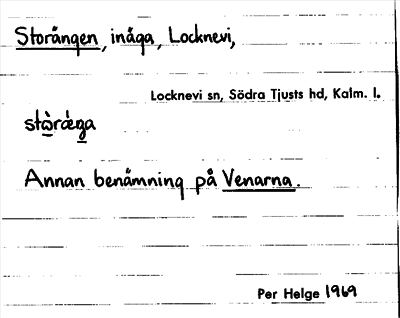 Storängen, inäga, Locknevi,
Locknevi sn, Södra Tjusts hd, Kalm. l.
stò̱ræ̀ŋa
Annan benämning på Venarna.
Per Helge 1969